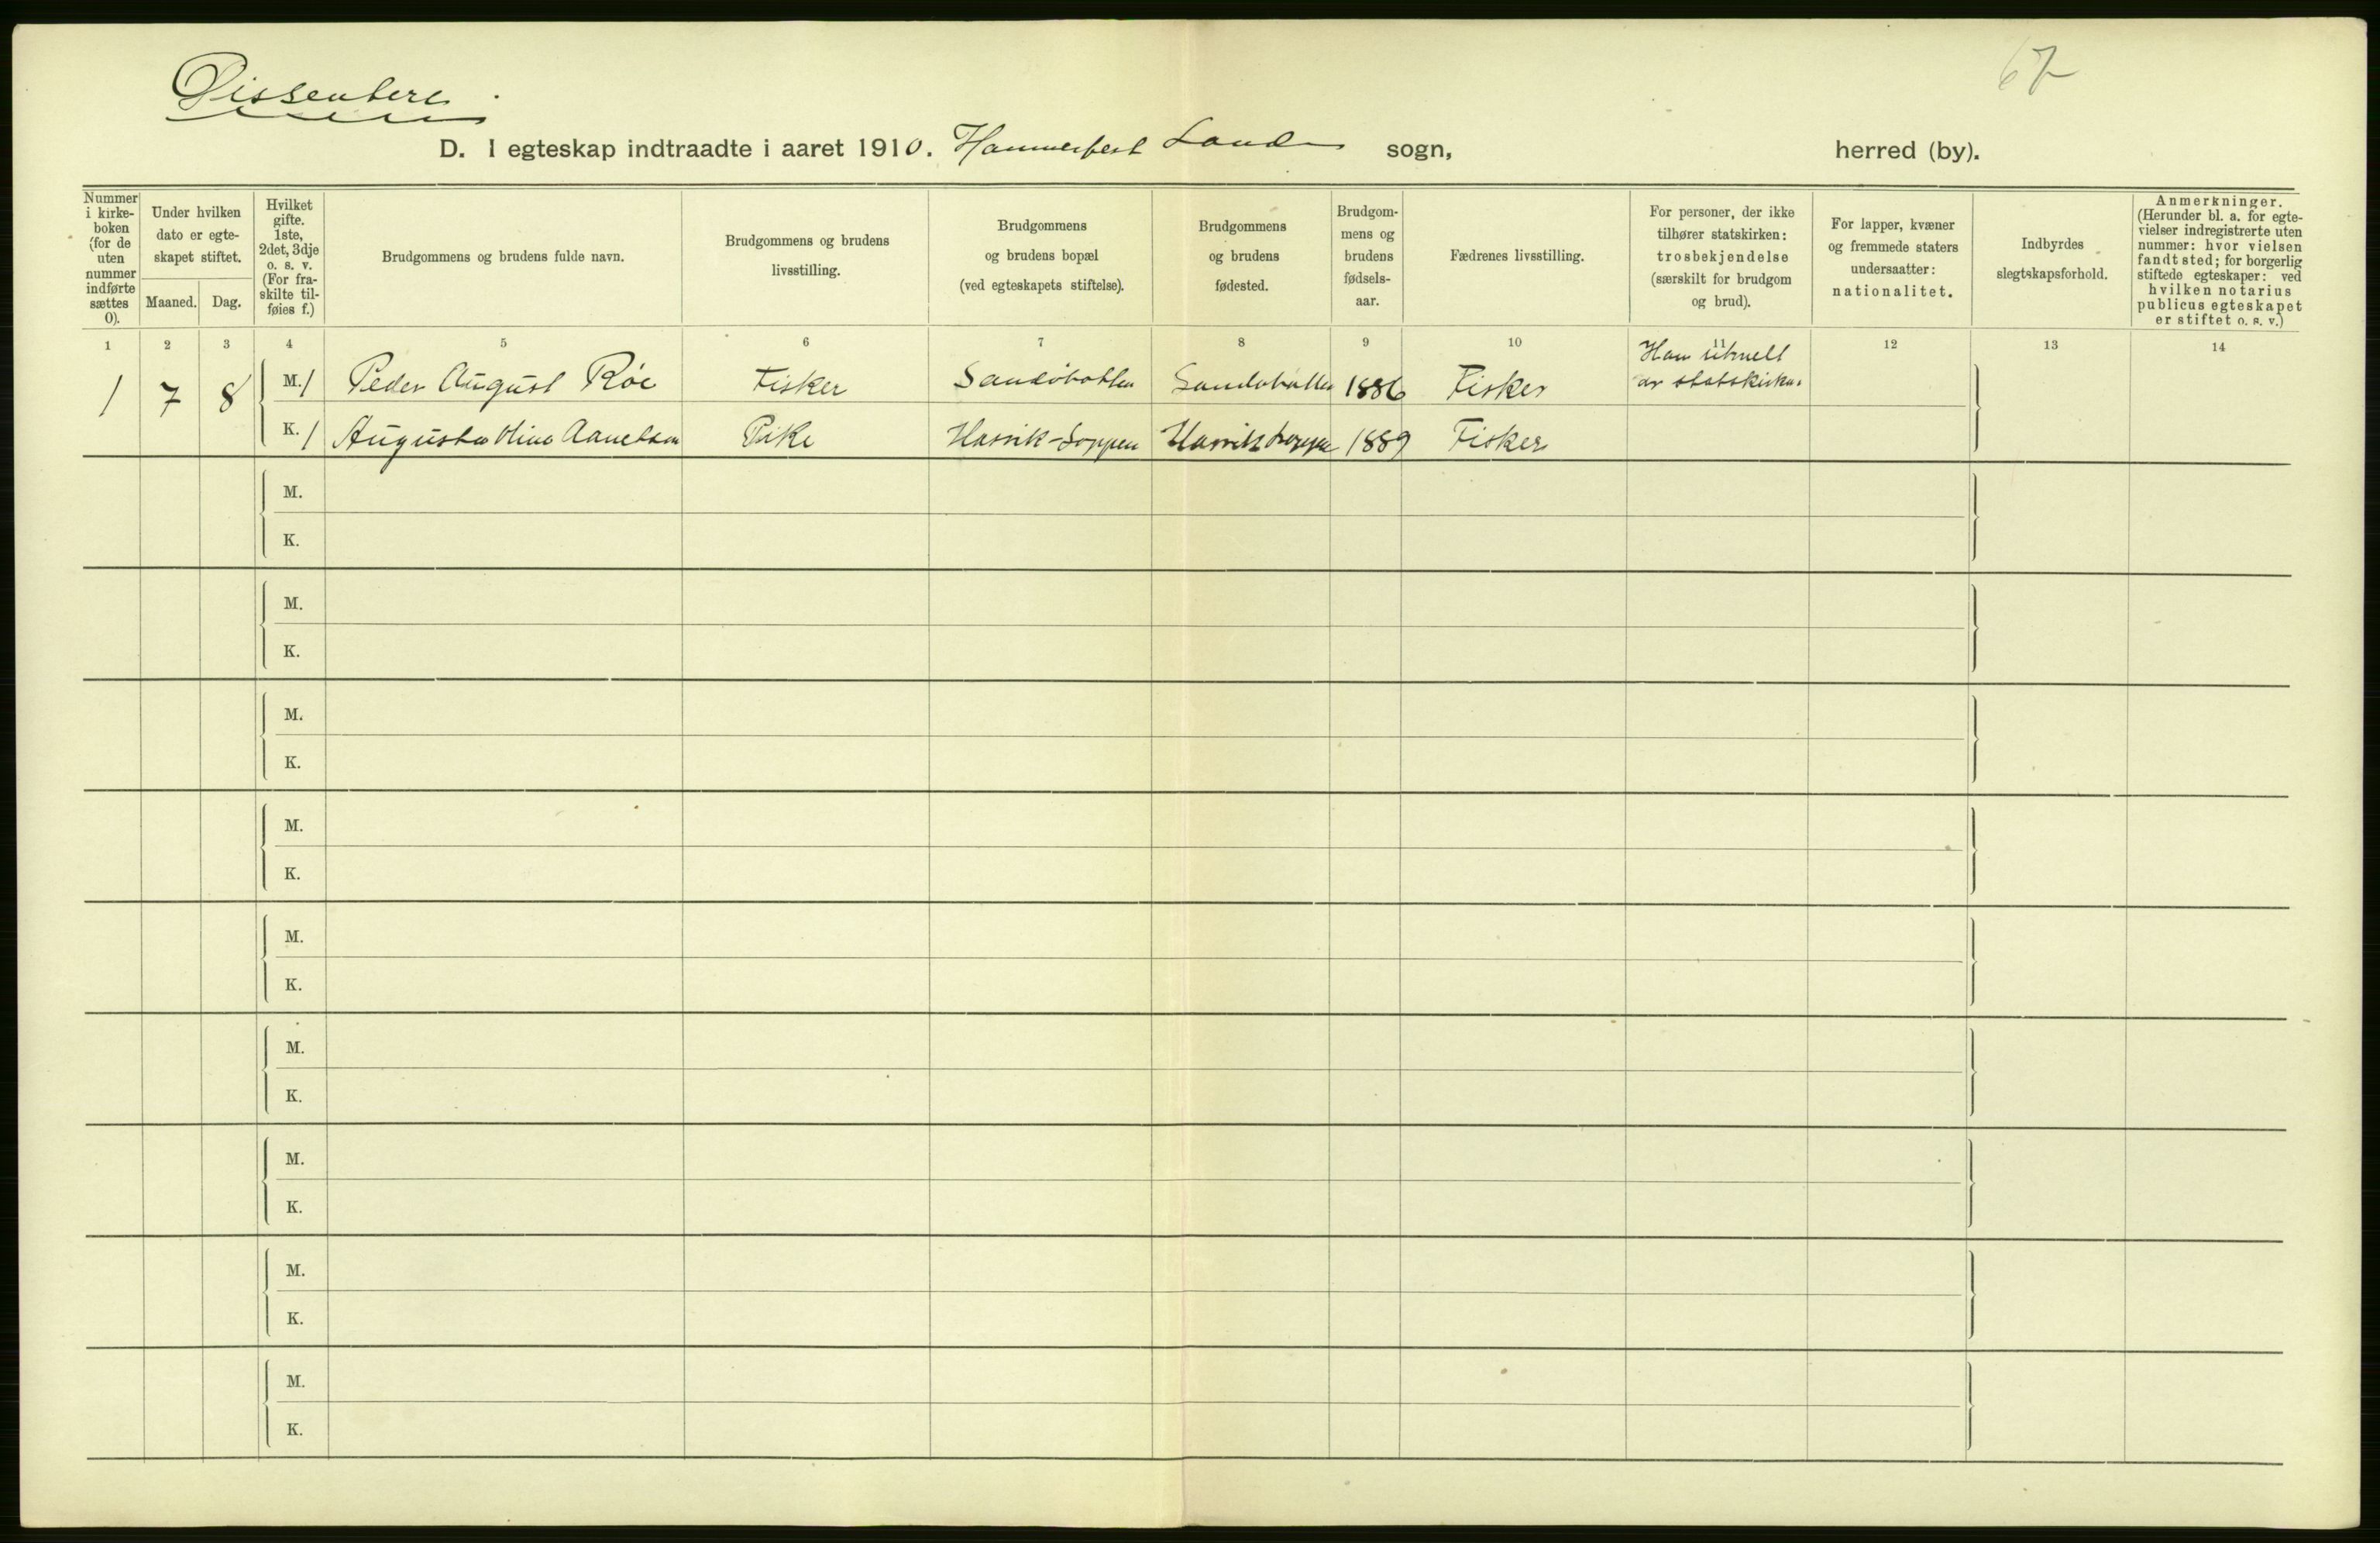 67
Dissentere
D. I egteskap indtraadte i aaret 1910. Hammerfest Land sogn, herred (by).
Nummer i kirkeboken (for de uten nummer indførte sættes 0).
Under hvilken dato er egteskapet stiftet.
Maaned. Dag.
Hvilket gifte. 1ste, 2det, 3dje o. s. v. (For fraskilte tilføies f.)
Brudgommens og brudens fulde navn.
Brudgommens og brudens livsstilling.
Brudgommens og brudens bopæl (ved egteskapets stiftelse).
Brudgommens og brudens fødested.
Brudgommens og brudens fødselsaar.
Fædrenes livsstilling.
For personer, der ikke tilhører statskirken: trosbekjendelse (særskilt for brudgom og brud).
For lapper, kvæner og fremmede staters undersaatter: nationalitet.
Indbyrdes slegtskapsforhold.
Anmerkninger. (Herunder bl. a. for egtevielser indregistrerte uten nummer: hvor vielsen fandt sted; for borgerlig stiftede egteskaper: ved hvilken notarius publicus egteskapet er stiftet o. s. v.)
1 2 3 4 5 6 7 8 9 10 11 12 13 14
1 7 8 M. 1 Peder August Röe Fisker Sandöbotten Sandöbotten 1886 Fisker Han utmelt av statskirken
K. 1 Augusta Olina Fisker 1889 Pike
M.
K.
M.
K.
M.
K.
M.
K.
M.
K.
M.
K.
M.
K.
M.
K.
M.
K.